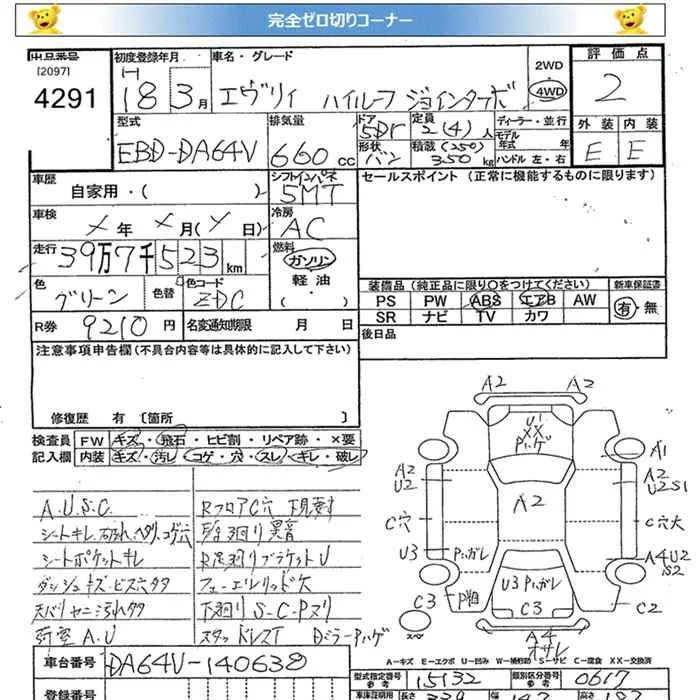 完全ゼロ切りコーナー
出品番号 初度登録年月 車名・グレード 2WD 評価点
[2097] 4WD
4291 18 3月 エヴリイ ハイルーフ ジョインターボ 2
型式 排気量 ドア 定員 ディーラー・並行 外装 内装
EBD-DA64V 660cc 5Dr 2(4)人 モデル年式 年
形状 積載(250)
バン 350kg ハンドル 左・右 E E
車歴 自家用・( ) シフト インパネ セールスポイント(正常に機能するものに限ります)
5MT
車検 メ年 メ月(メ日) 冷房
AC
走行 39万7千523km 燃料
ガソリン
軽油
・( )
色 グリーン 色替 色コード ZDC
装備品(純正品に限り○をつけてください) 新車保証書
PS PW ABS エアB AW 有・無
SR ナビ TV カワ
R券 9210円 名変通知期限 月 日 後日品
注意事項申告欄(不具合内容等は具体的に記入して下さい)
修復歴 有〔箇所 〕
検査員 FW キズ・飛石・ヒビ割・リペア跡・×要
記入欄 内装 キズ・汚レ・コゲ・穴・スレ・キレ・破レ
A.U.S.C. RフロアC穴
シートキレ コゲ穴
シートポケットキレ R足廻りブラケットU
ダッシュキズ・ビス穴タタ フューエルリッド欠
下廻り S-C-Pヌリ
荷室A.U スタッドレスT DミラーPハゲ
A2 A2
U1
XX
Pハゲ
A1
A2
U2
A2
U2S1
A2
C穴 C穴大
U3 Pハガレ
A4U2
S2
U3 Pハガレ
C3
C3 C2
A4
オサレ
スペ
A-キズ E-エクボ U-凹み W-補修跡 S-サビ C-腐食 XX-交換済
車台番号 DA64V-140638
型式指定番号 参考 15132 類別区分番号 参考 0617
登録番号 車庫証明用 長さ 339 幅 147 高さ